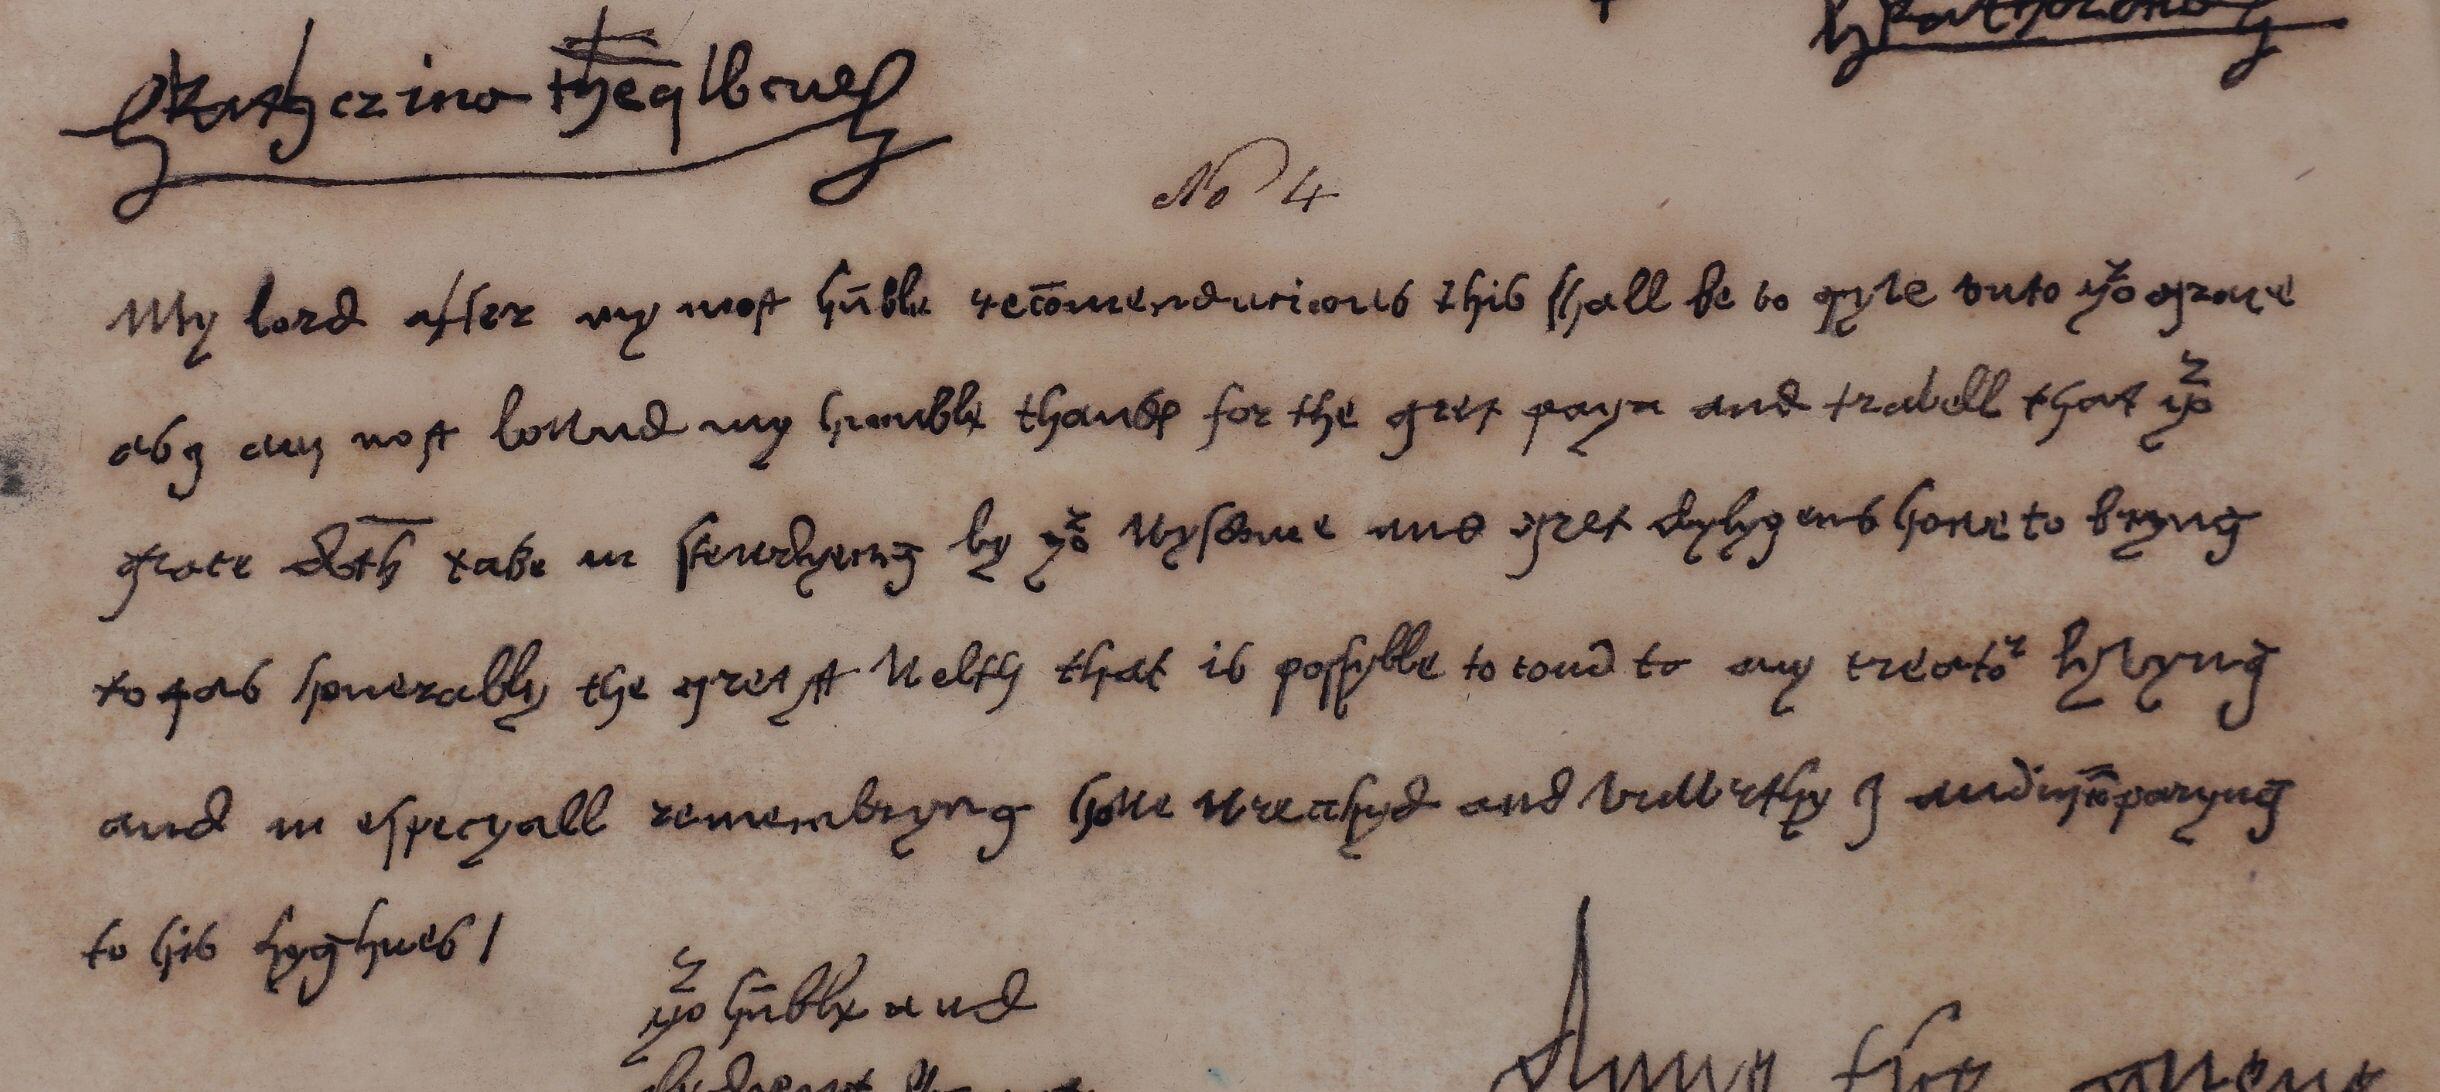 Katherina the qwene
No 4
My lord after my most hūble recōmendacions this shall be to gyve unto yoʳ grace
as j am most bownd my humble thanks for the gret payn and travell that yoʳ
grace doth take in stewdyeng by yoʳ wysdome and gret dylygens howe to bryng
to pas honerably the gretyst welth that is possyble to com to any creatoʳ lyvyng
and in especyall remembryng howe wrechyd and unwrthy j am in cōparyng
to his hyghnes /
yoʳ hūble and
Anne the quene